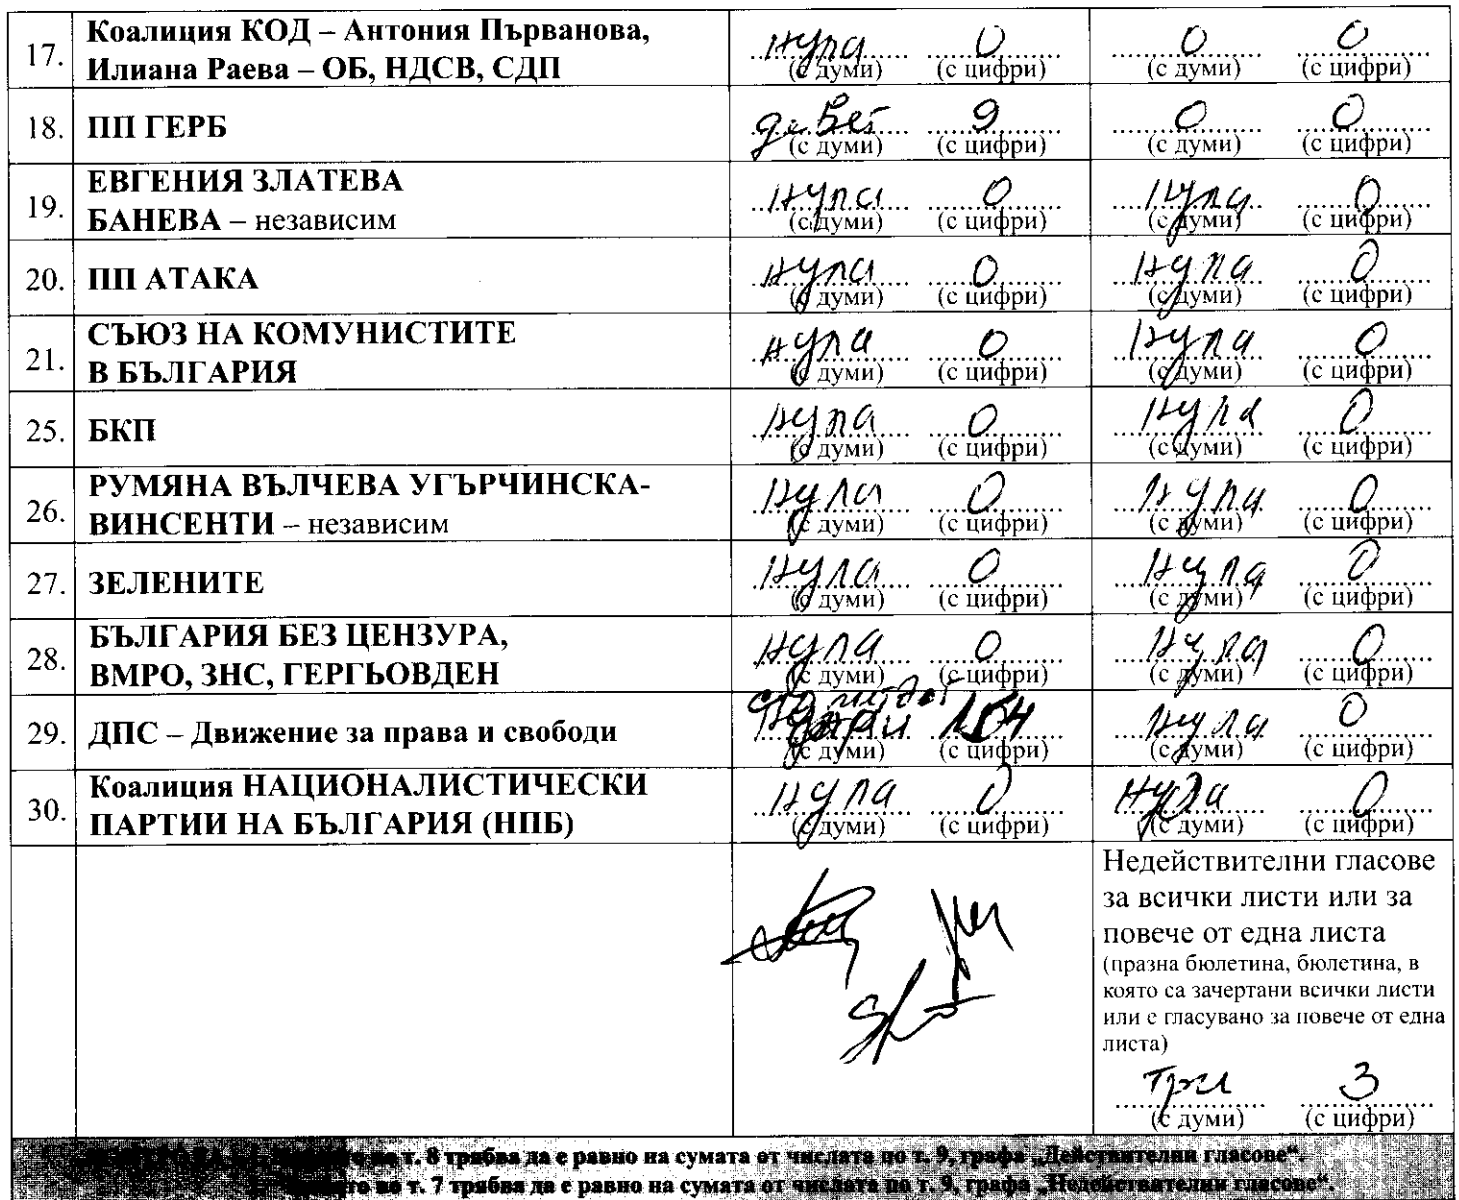 17. Коалиция КОД – Антония Първанова, нула 0 0 0
Илиана Раева – ОБ, НДСВ, СДП (с думи) (с цифри) (с думи) (с цифри)
18. ПП ГЕРБ девет 9 0 0
(с думи) (с цифри) (с думи) (с цифри)
19. ЕВГЕНИЯ ЗЛАТЕВА нула 0 нула 0
БАНЕВА – независим (с думи) (с цифри) (с думи) (с цифри)
20. ПП АТАКА нула 0 нула 0
(с думи) (с цифри) (с думи) (с цифри)
21. СЪЮЗ НА КОМУНИСТИТЕ нула 0 нула 0
В БЪЛГАРИЯ (с думи) (с цифри) (с думи) (с цифри)
25. БКП нула 0 нула 0
(с думи) (с цифри) (с думи) (с цифри)
26. РУМЯНА ВЪЛЧЕВА УГЪРЧИНСКА- нула 0 нула 0
ВИНСЕНТИ – независим (с думи) (с цифри) (с думи) (с цифри)
27. ЗЕЛЕНИТЕ нула 0 нула 0
(с думи) (с цифри) (с думи) (с цифри)
28. БЪЛГАРИЯ БЕЗ ЦЕНЗУРА, нула 0 нула 0
ВМРО, ЗНС, ГЕРГЬОВДЕН (с думи) (с цифри) (с думи) (с цифри)
сто
29. ДПС – Движение за права и свободи 154 нула 0
(с думи) (с цифри) (с думи) (с цифри)
30. Коалиция НАЦИОНАЛИСТИЧЕСКИ нула 0 нула 0
ПАРТИИ НА БЪЛГАРИЯ (НПБ) (с думи) (с цифри) (с думи) (с цифри)
Недействителни гласове
за всички листи или за
повече от една листа
(празна бюлетина, бюлетина, в
която са зачертани всички листи
или е гласувано за повече от една
листа)
три 3
(с думи) (с цифри)
по т. 8 трябва да е равно на сумата от числата по т. 9, графа „Действителни гласове“.
по т. 7 трябва да е равно на сумата от числата по т. 9, графа „Недействителни гласове“.